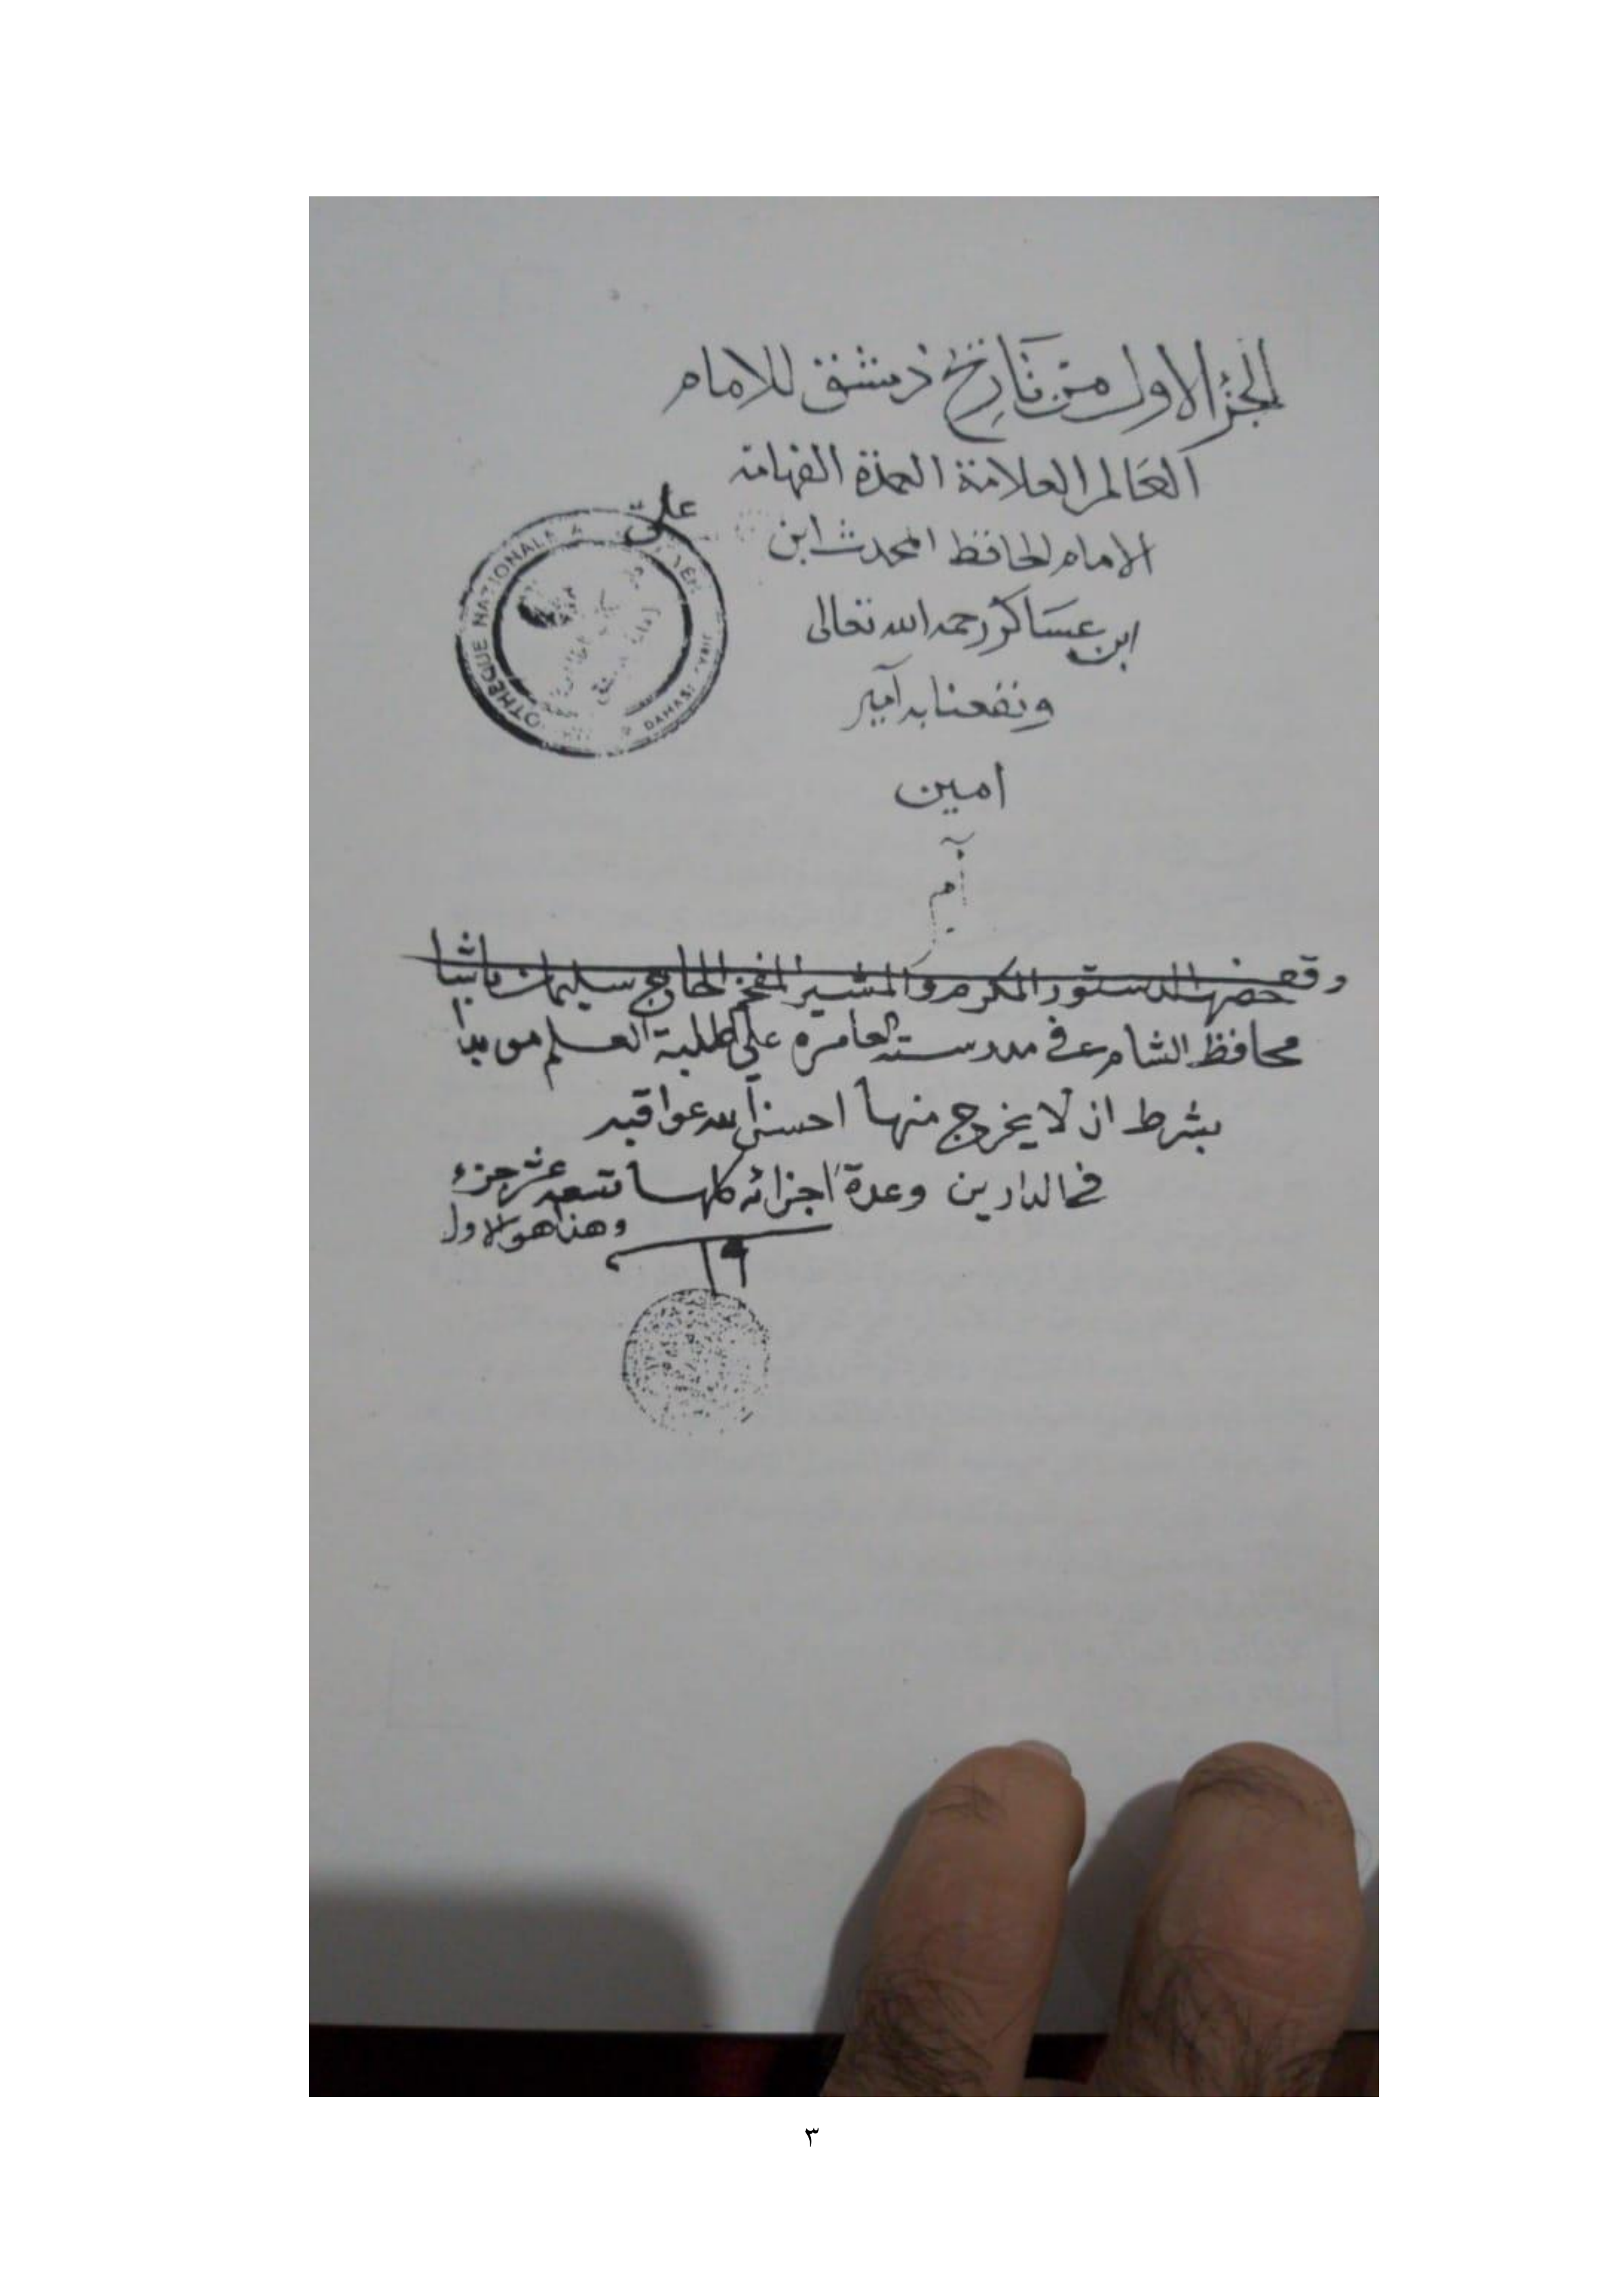 الجزء الاول من تاريخ دمشق للامام
العالم العلامة العمدة الفهامة
الامام الحافظ المحدث ابن
علي
ابن عساكر رحمه الله تعالى
ونفعنا به آمين
امين
آمين
BIBLIOTHEQUE NATIONALE
DAMAS SYRIE
وقف الدستور المكرم والمشير المفخم الحاج سليمان باشا
محافظ الشام في مدرسته العامرة على طلبة العلم موبدا
بشرط ان لا يخرج منها احسن الله عواقبه
في الدارين وعدة اجزائه كلها تسعة عشر جزء
وهذا هو الاول
١٩
٣